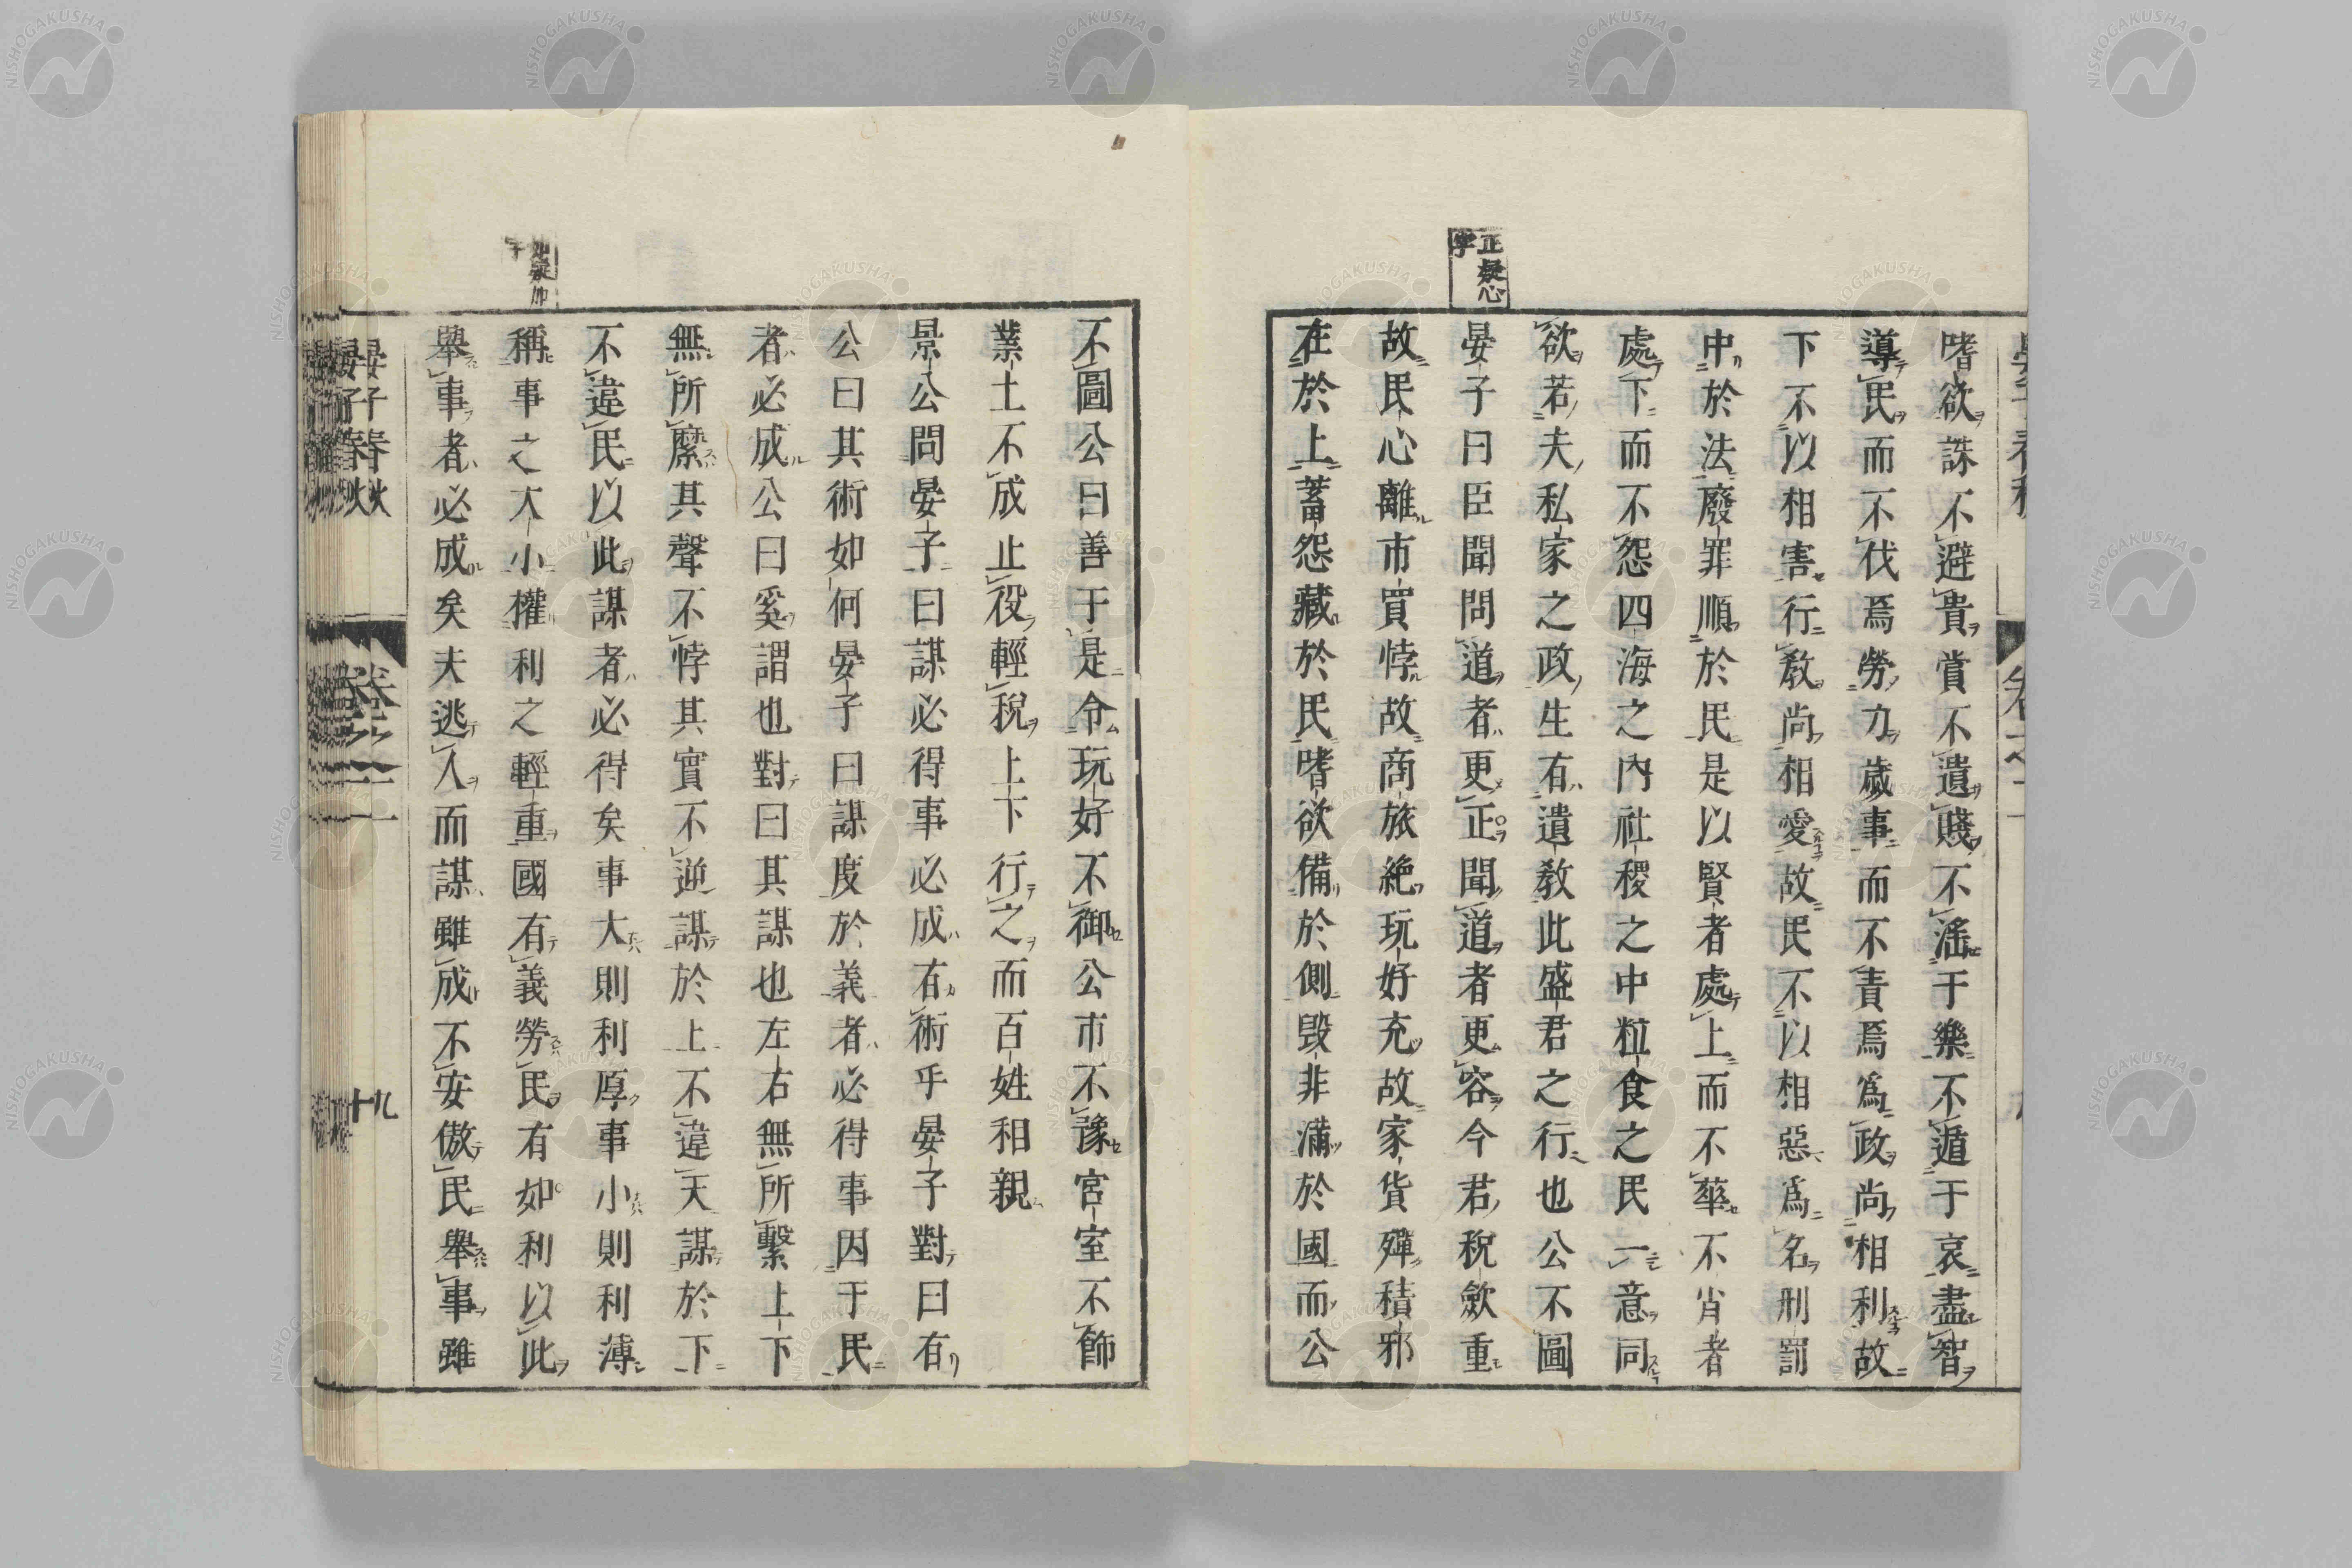 嗜欲誅不避貴賞不遺賤不滛于樂不遁于哀盡智
導民而不伐焉勞力歲事而不責焉爲政尚相利故
下不以相害行教尚相愛故民不以相惡爲名刑罰
中於法廢罪順於民是以賢者處上而不華不肖者
處下而不怨四海之內社稷之中粒食之民一意同
欲若夫私家之政生有遺教此盛君之行也公不圖
晏子曰臣聞問道者更正聞道者更容今君稅歛重
故民心離市買悖故商旅絶玩好充故家貨殫積邪
在於上蓄怨藏於民嗜欲備於側毀非滿於國而公
正疑心
字
不圖公曰善于是令玩好不御公市不豫宮室不飾
業土不成止役輕稅上下行之而百姓相親
景公問晏子曰謀必得事必成有術乎晏子對曰有
公曰其術如何晏子曰謀度於義者必得事因于民
者必成公曰奚謂也對曰其謀也左右無所繫上下
無所縻其聲不悖其實不逆謀於上不違天謀於下
不違民以此謀者必得矣事大則利厚事小則利薄
稱事之大小權利之輕重國有義勞民有如利以此
舉事者必成矣夫逃人而謀雖成不安傲民舉事雖
晏子春秋 卷之三 十九